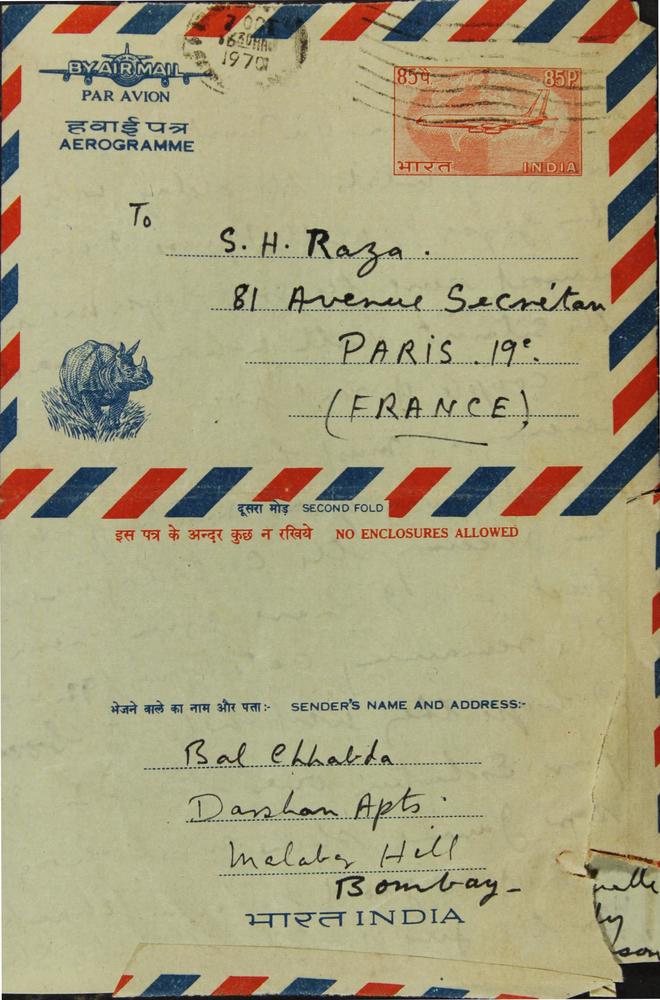 7 OCT
1630 HRS
1970
BY AIR MAIL
PAR AVION
हवाई पत्र
AEROGRAMME
85 प. 85 P
भारत INDIA
To
S. H. Raza.
81 Avenue Secrétan
PARIS. 19e.
(FRANCE)
दूसरा मोड़ SECOND FOLD
इस पत्र के अन्दर कुछ न रखिये NO ENCLOSURES ALLOWED
भेजने वाले का नाम और पता:- SENDER'S NAME AND ADDRESS:-
Bal Chhabda
Darshan Apts.
Malabar Hill
Bombay-
भारत INDIA
by